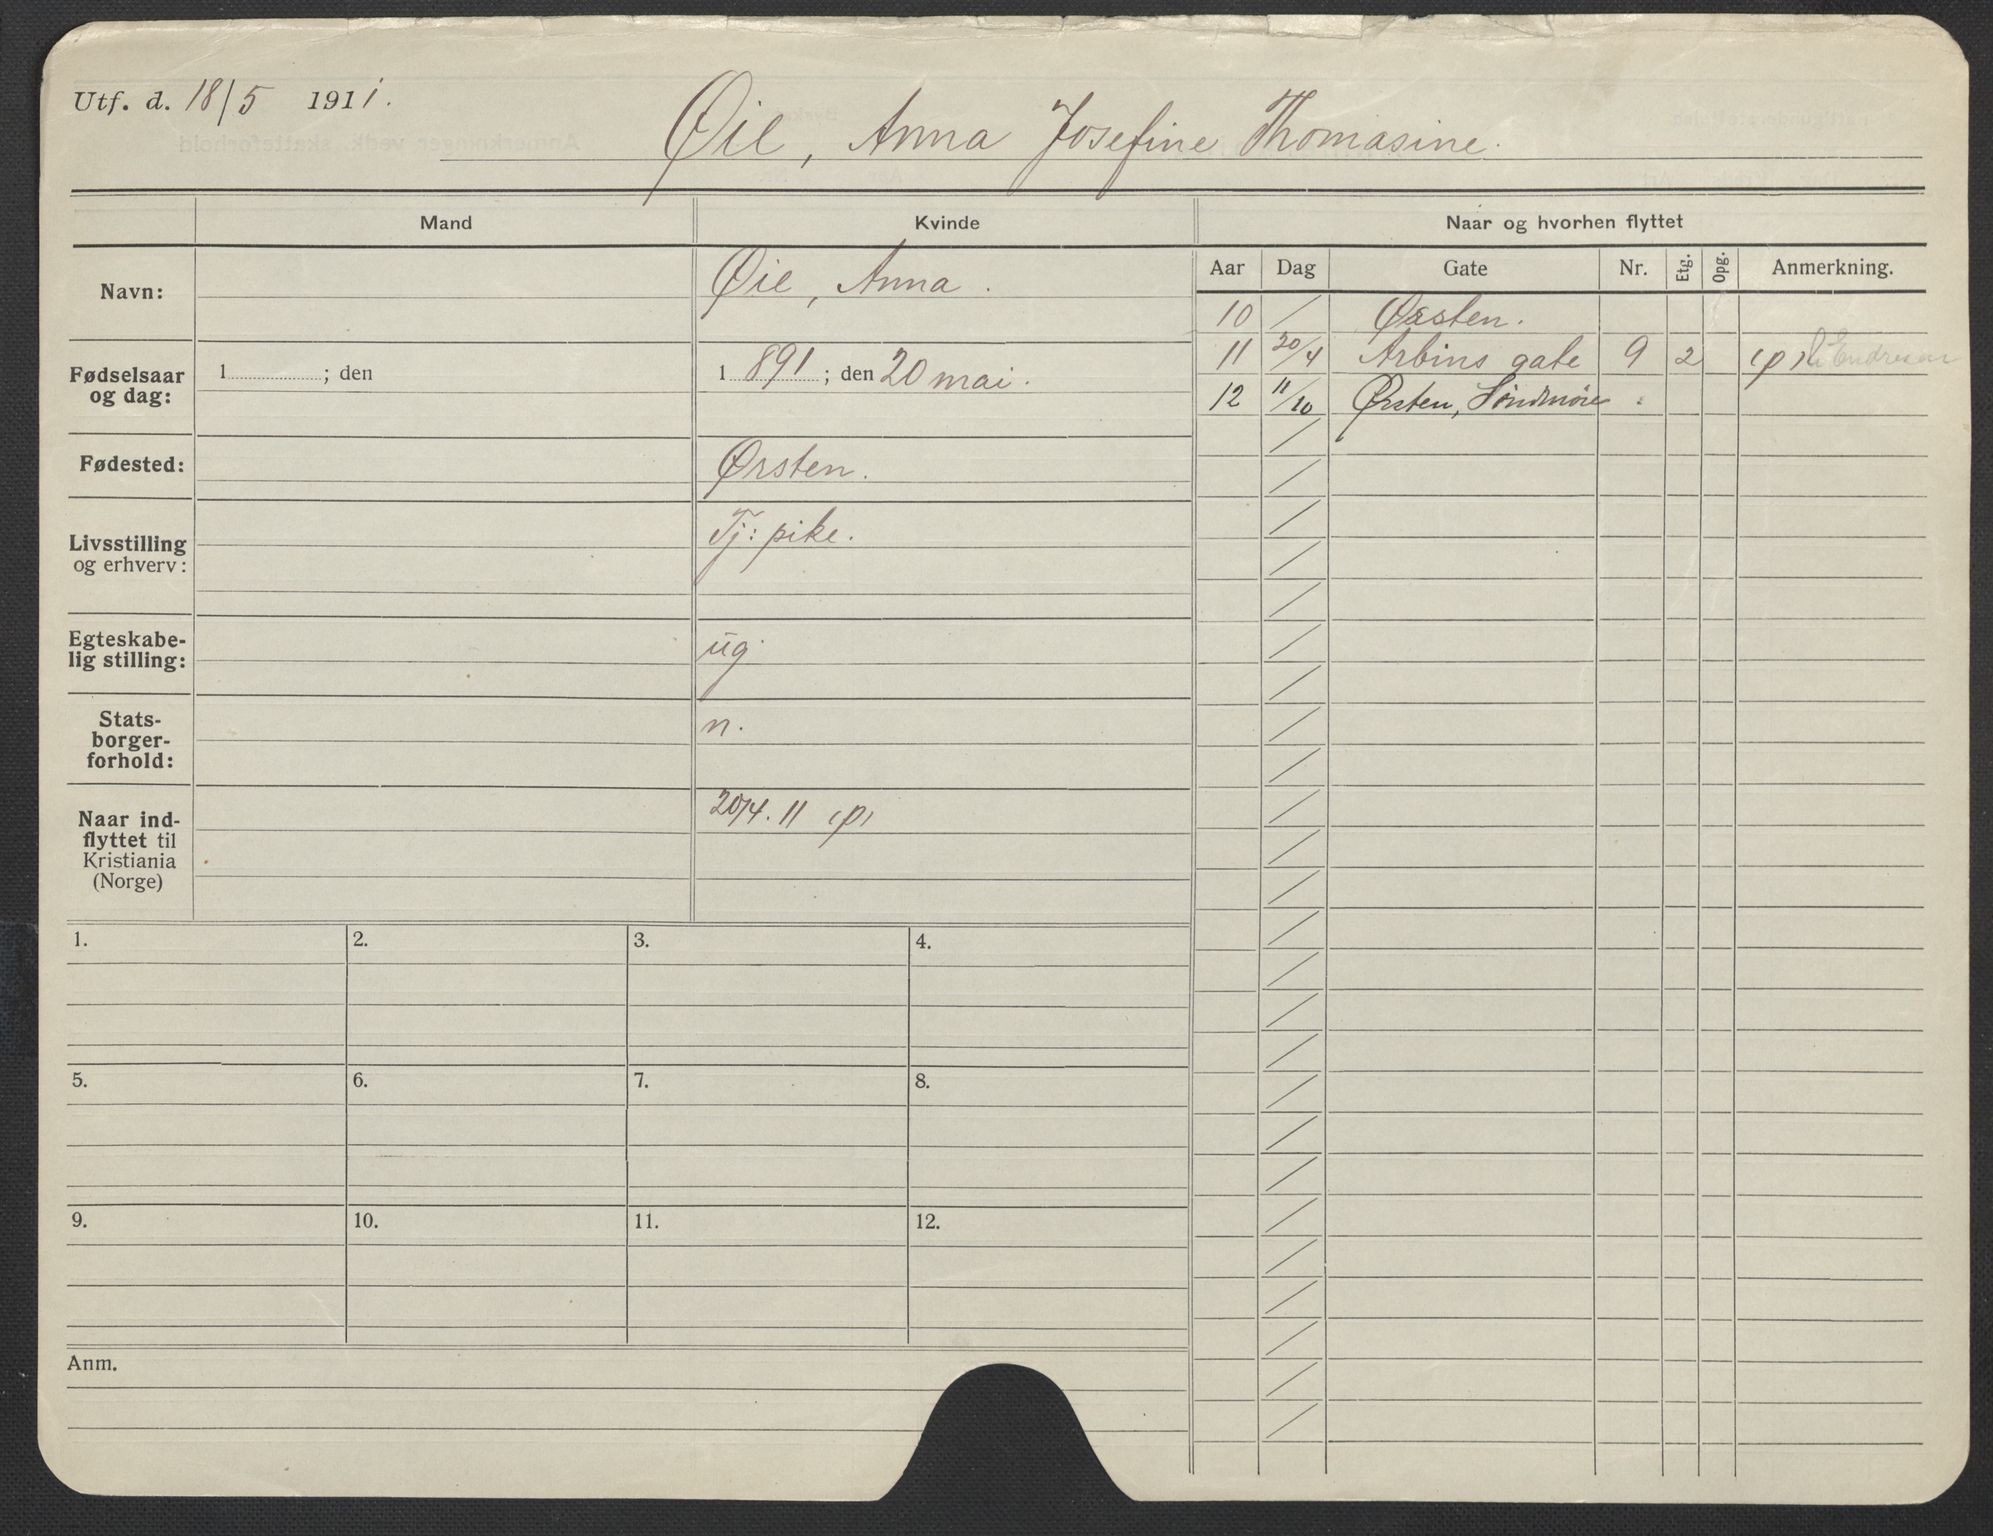 Utf. d. 18/5 1911.
Øie, Anna Josefine Thomasine.
Mand
Kvinde
Naar og hvorhen flyttet
Aar Dag Gate Nr. Etg. Opg. Anmerkning.
Navn:
Øie, Anna.
Fødselsaar
og dag:
1 ; den
1891; den 20 mai.
Fødested:
Ørsten.
Livsstilling
og erhverv:
Tj: pike.
Egteskabe-
lig stilling:
ug.
Stats-
borger-
forhold:
n.
Naar ind-
flyttet til
Kristiania
(Norge)
20/4. 11 (p)
10 / Ørsten.
11 20/4 Arbins gate 9 2 (p) Endresen
12 11/10 Ørsten, Søndmøre
1. 2. 3. 4.
5. 6. 7. 8.
9. 10. 11. 12.
Anm.